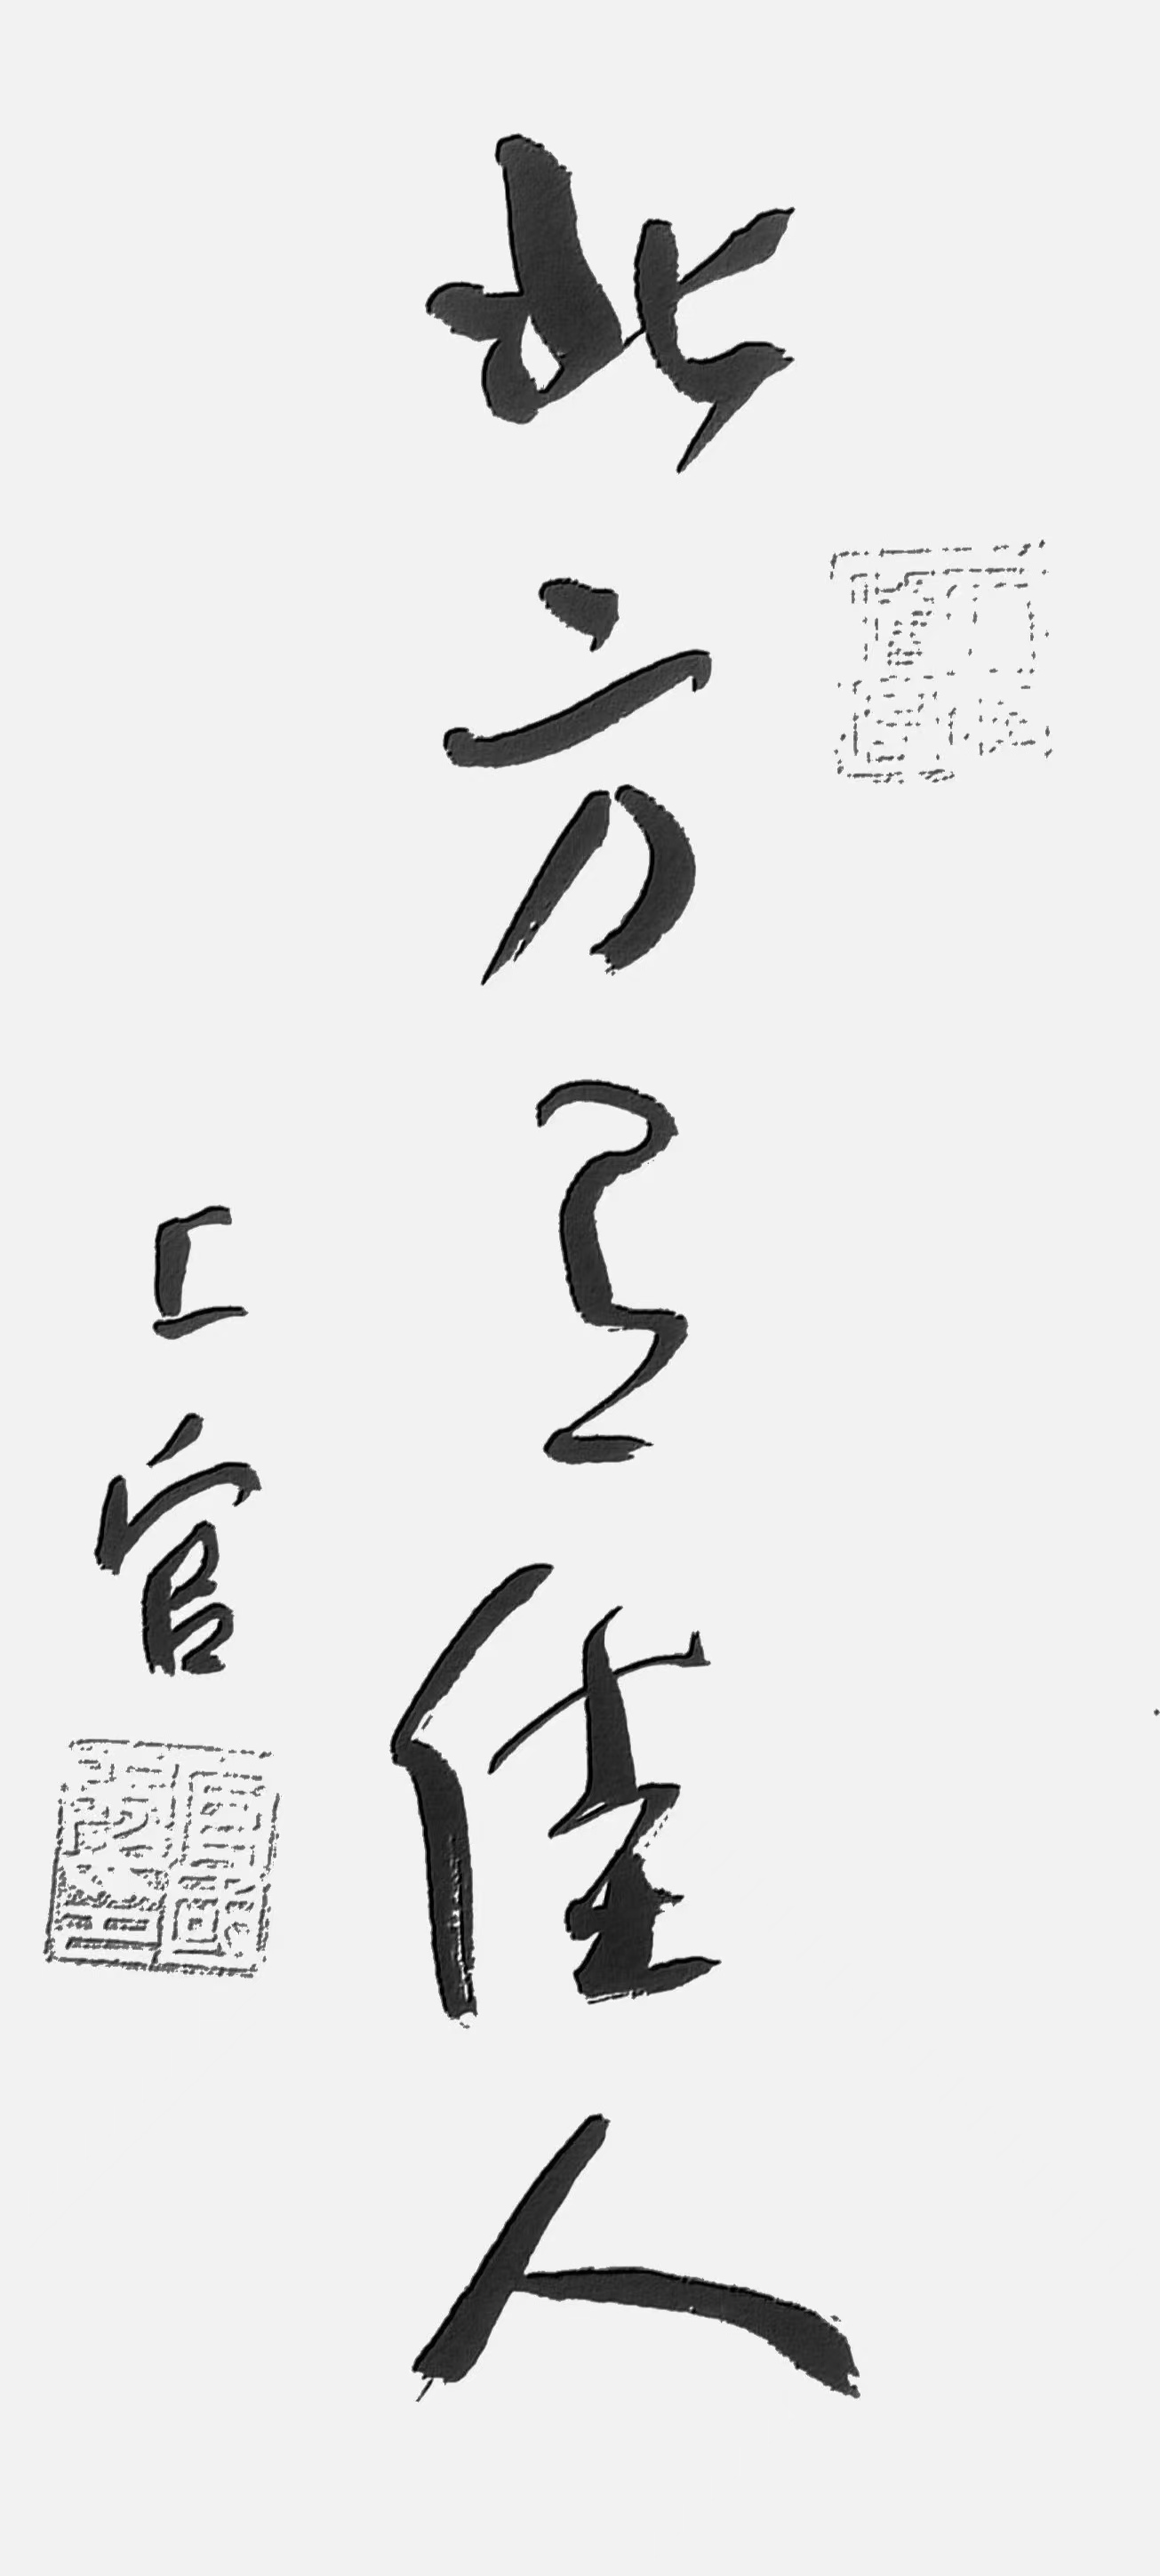 北方有佳人
上官